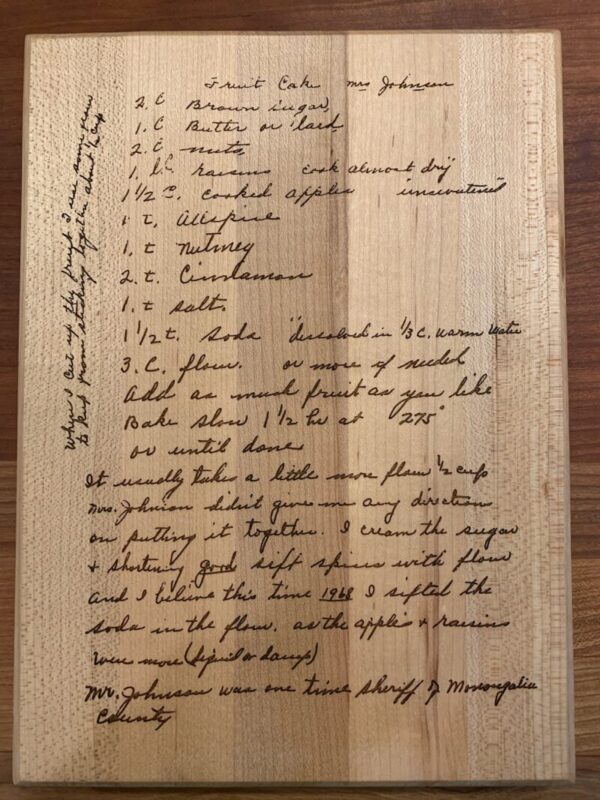 Fruit Cake Mrs Johnson
2. C Brown sugar,
1. C Butter or lard
2. C nuts
1, lb raisins cook almost dry
1 1/2 c. cooked apples "unsweetened"
1 t. Allspice
1. t Nutmeg
2. t. Cinnamon
1. t salt.
1 1/2 t. soda "dissolved in 1/3 C. warm water
3. C. flour. or more if needed
Add as much fruit as you like
Bake slow 1 1/2 hr at 275°
or until done
It usually takes a little more flour 1/2 cup
Mrs. Johnson didn't give me any direction
on putting it together. I cream the sugar
+ shortening good sift spices with flour
and I believe this time 1968 I sifted the
soda in the flour. as the apples + raisins
were more (liquid or damp)
Mr. Johnson was one time sheriff of Monongalia
County
When I cut up the fruit I use some flour
to keep from sticking together about 1/2 cup